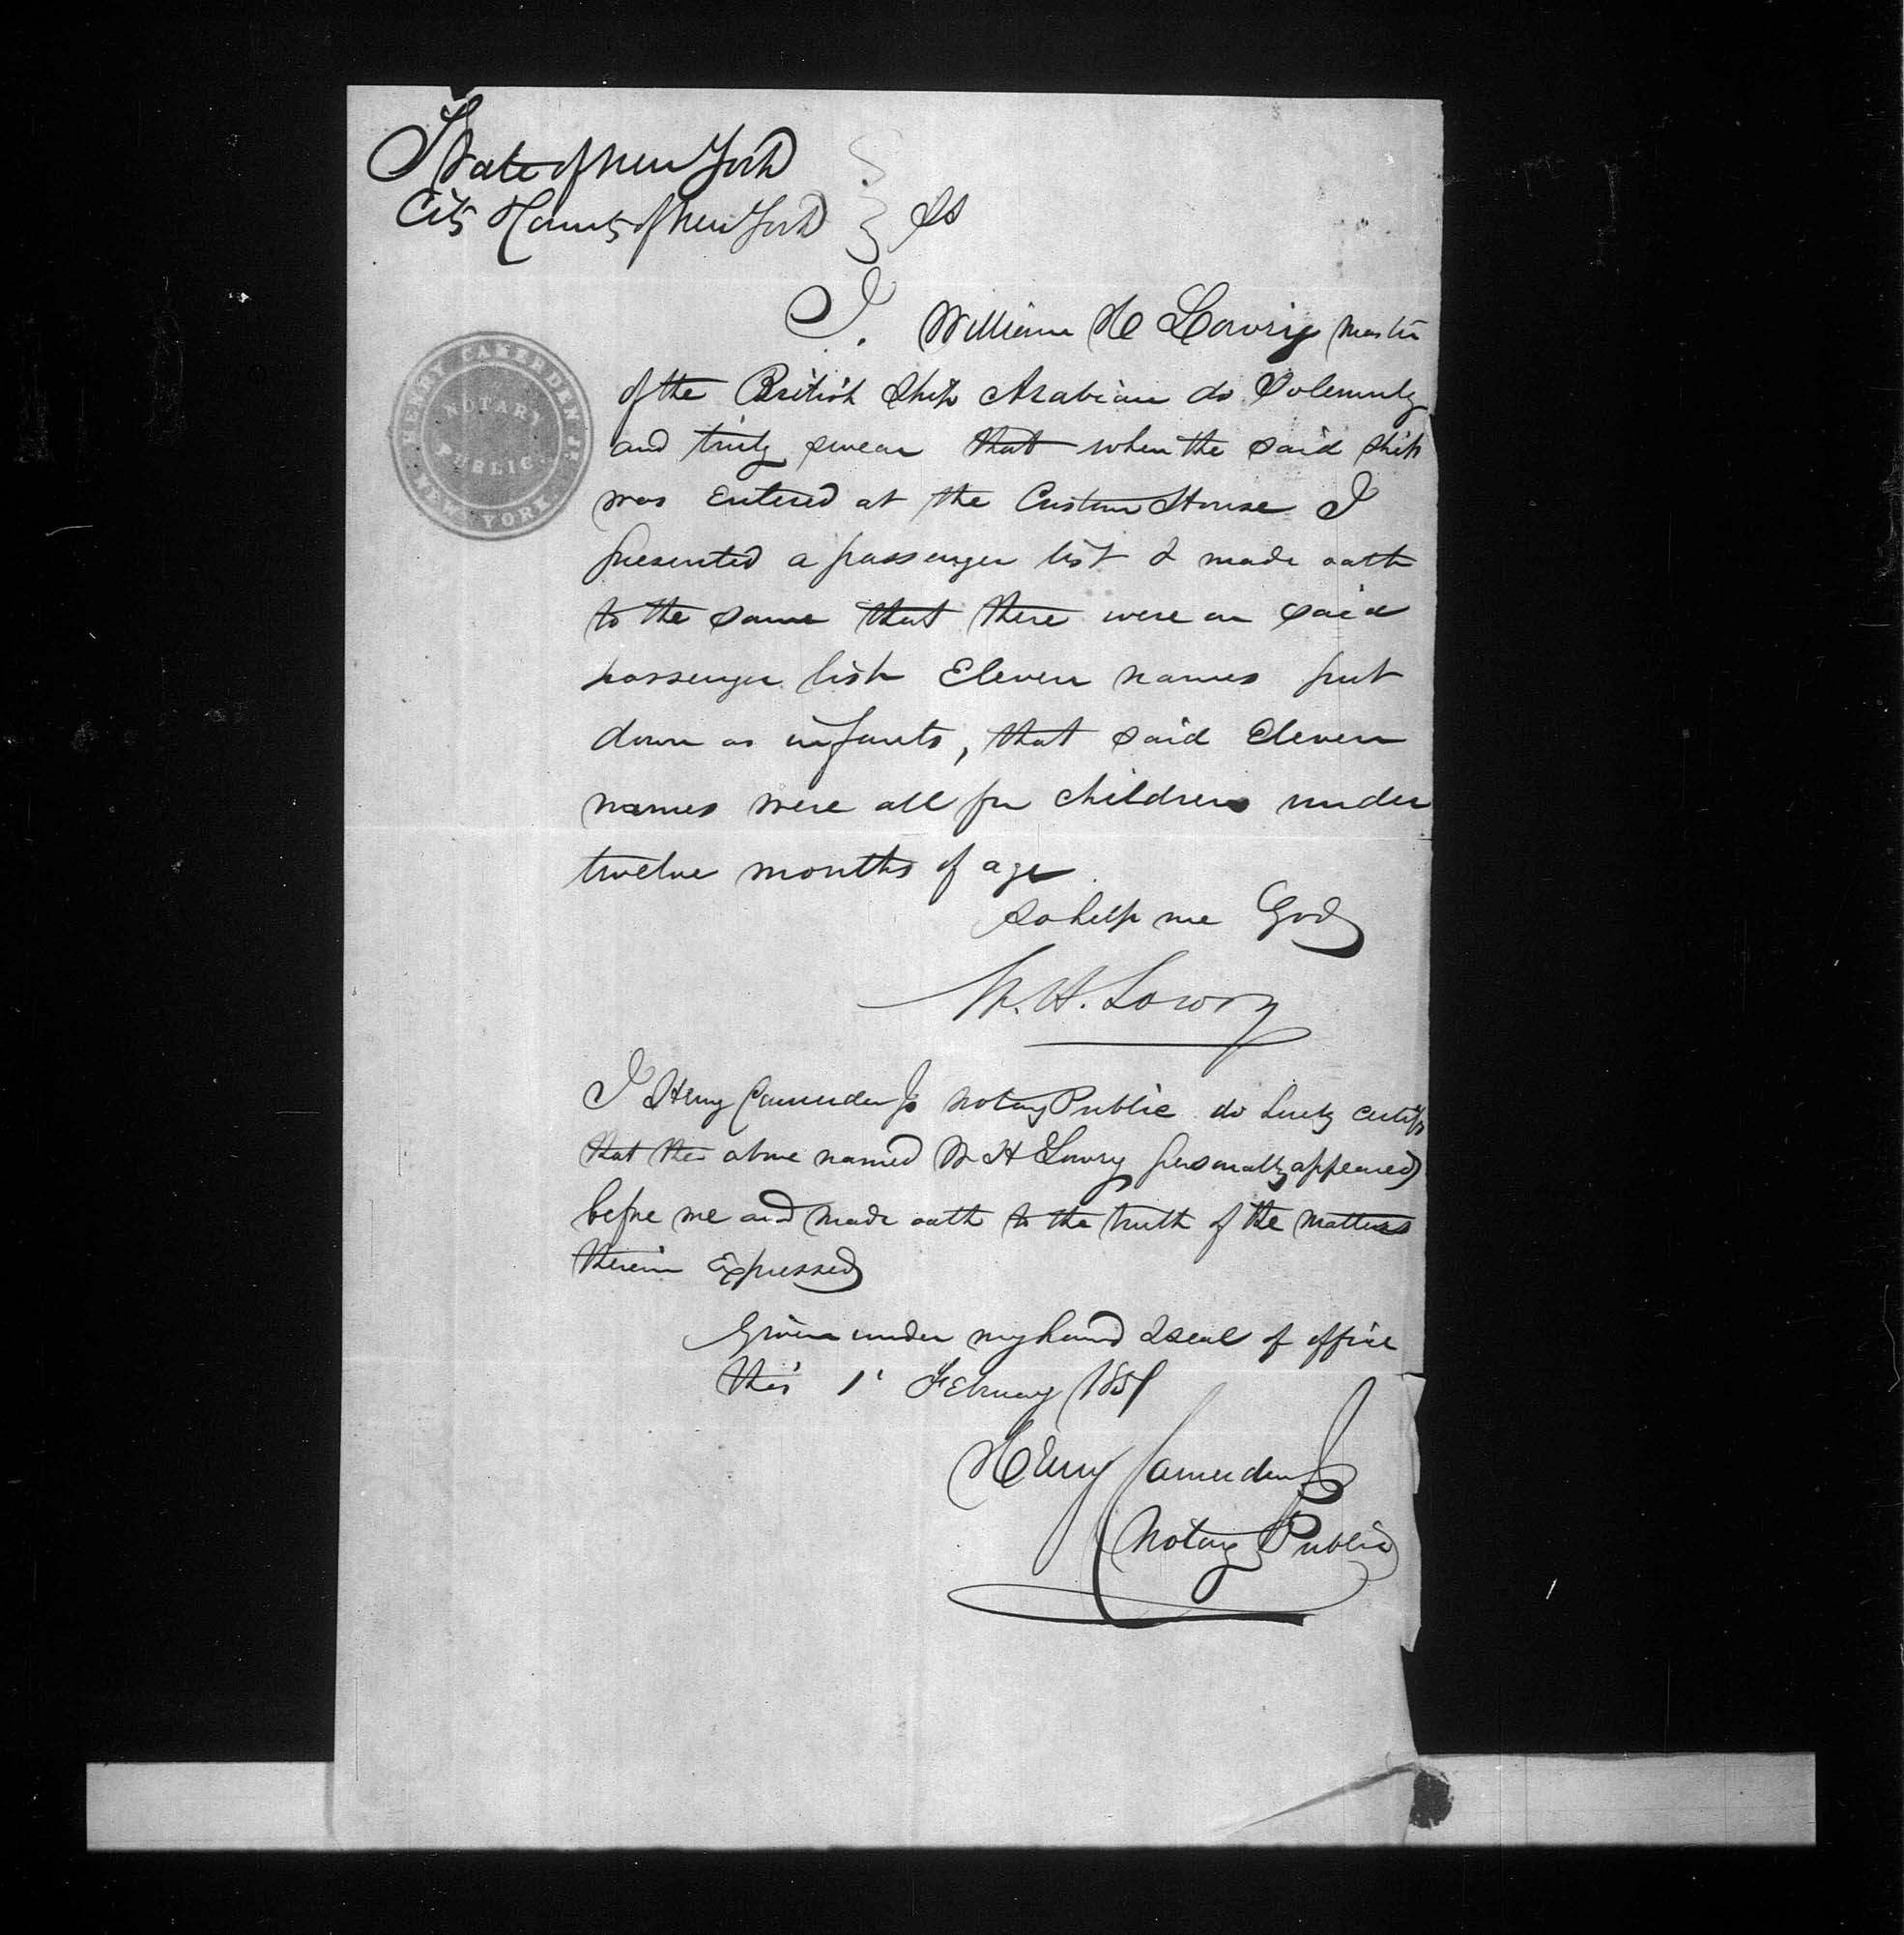 State of New York
City & County of New York } ss
HENRY CAMERDEN JR.
NOTARY
PUBLIC.
NEW YORK.
I. William H Lowry Master
of the British Ship Arabian do Solemnly
and truly swear that when the said ship
was Entered at the Custom House I
presented a passenger list & made oath
to the same that there were on said
passenger list Eleven names put
down as infants, that said Eleven
names were all for children under
twelve months of age
So help me God
W. H. Lowry
I Henry Camerden Jr Notary Public do hereby certify
that the above named W H Lowry personally appeared
before me and made oath to the truth of the matters
therein Expressed
Given under my hand & seal of office
this 1' February 1851
Henry Camerden Jr
Notary Public